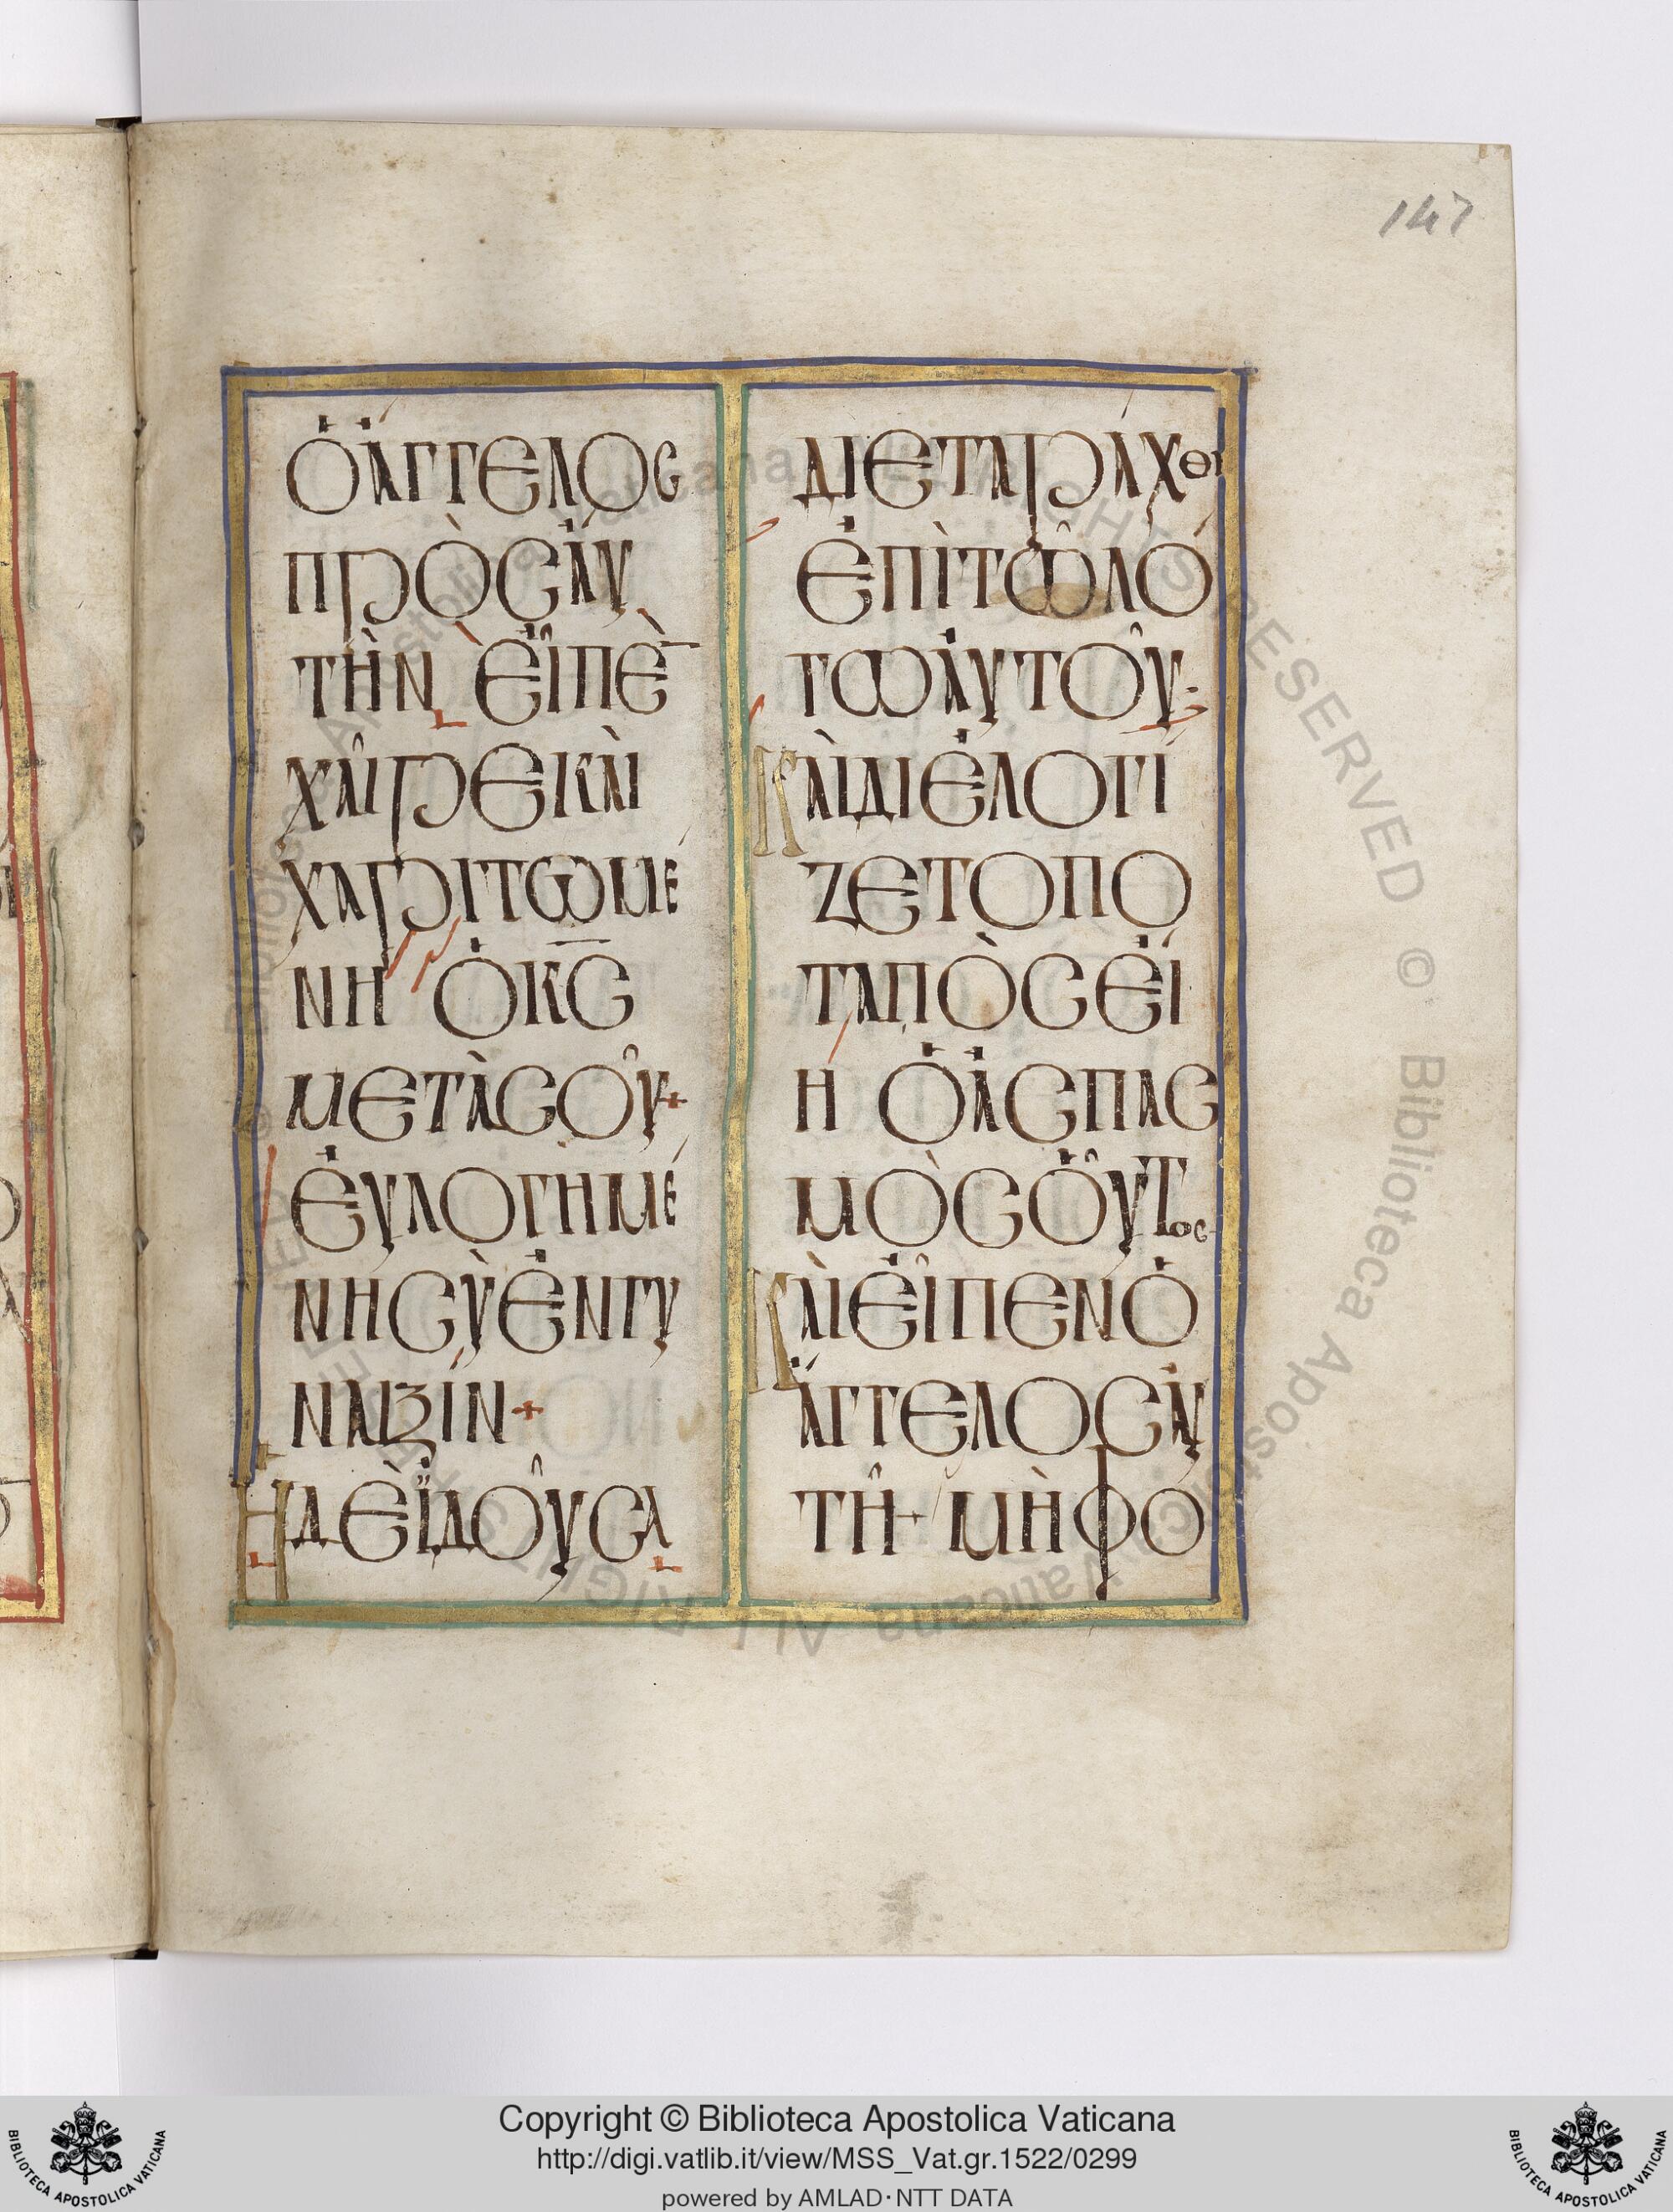 147
ὁἄγγελος
πρὸς ἀυ
τὴν εἶπὲ
χαῖρε καὶ
χαριτωμέ
νη ὁ κ̅ς̅
μετὰσοῦ+
ἐυλογημέ
νησὺἐνγυ
ναιξίν+
Ηδὲἰδοῦσα
διεταράχθη
ἐπὶτῶλό
γωἀυτοῦ:
Καὶδιελογί
ζετοπο
ταπὸςεἴ
η ὁἀσπασ
μὸςοὗτος
Καὶεἶπενὁ
ἄγγελοςἀυ
τῆ+ μὴφο
Copyright © Biblioteca Apostolica Vaticana
http://digi.vatlib.it/view/MSS_Vat.gr.1522/0299
powered by AMLAD·NTT DATA
BIBLIOTECA APOSTOLICA VATICANA
BIBLIOTECA APOSTOLICA VATICANA